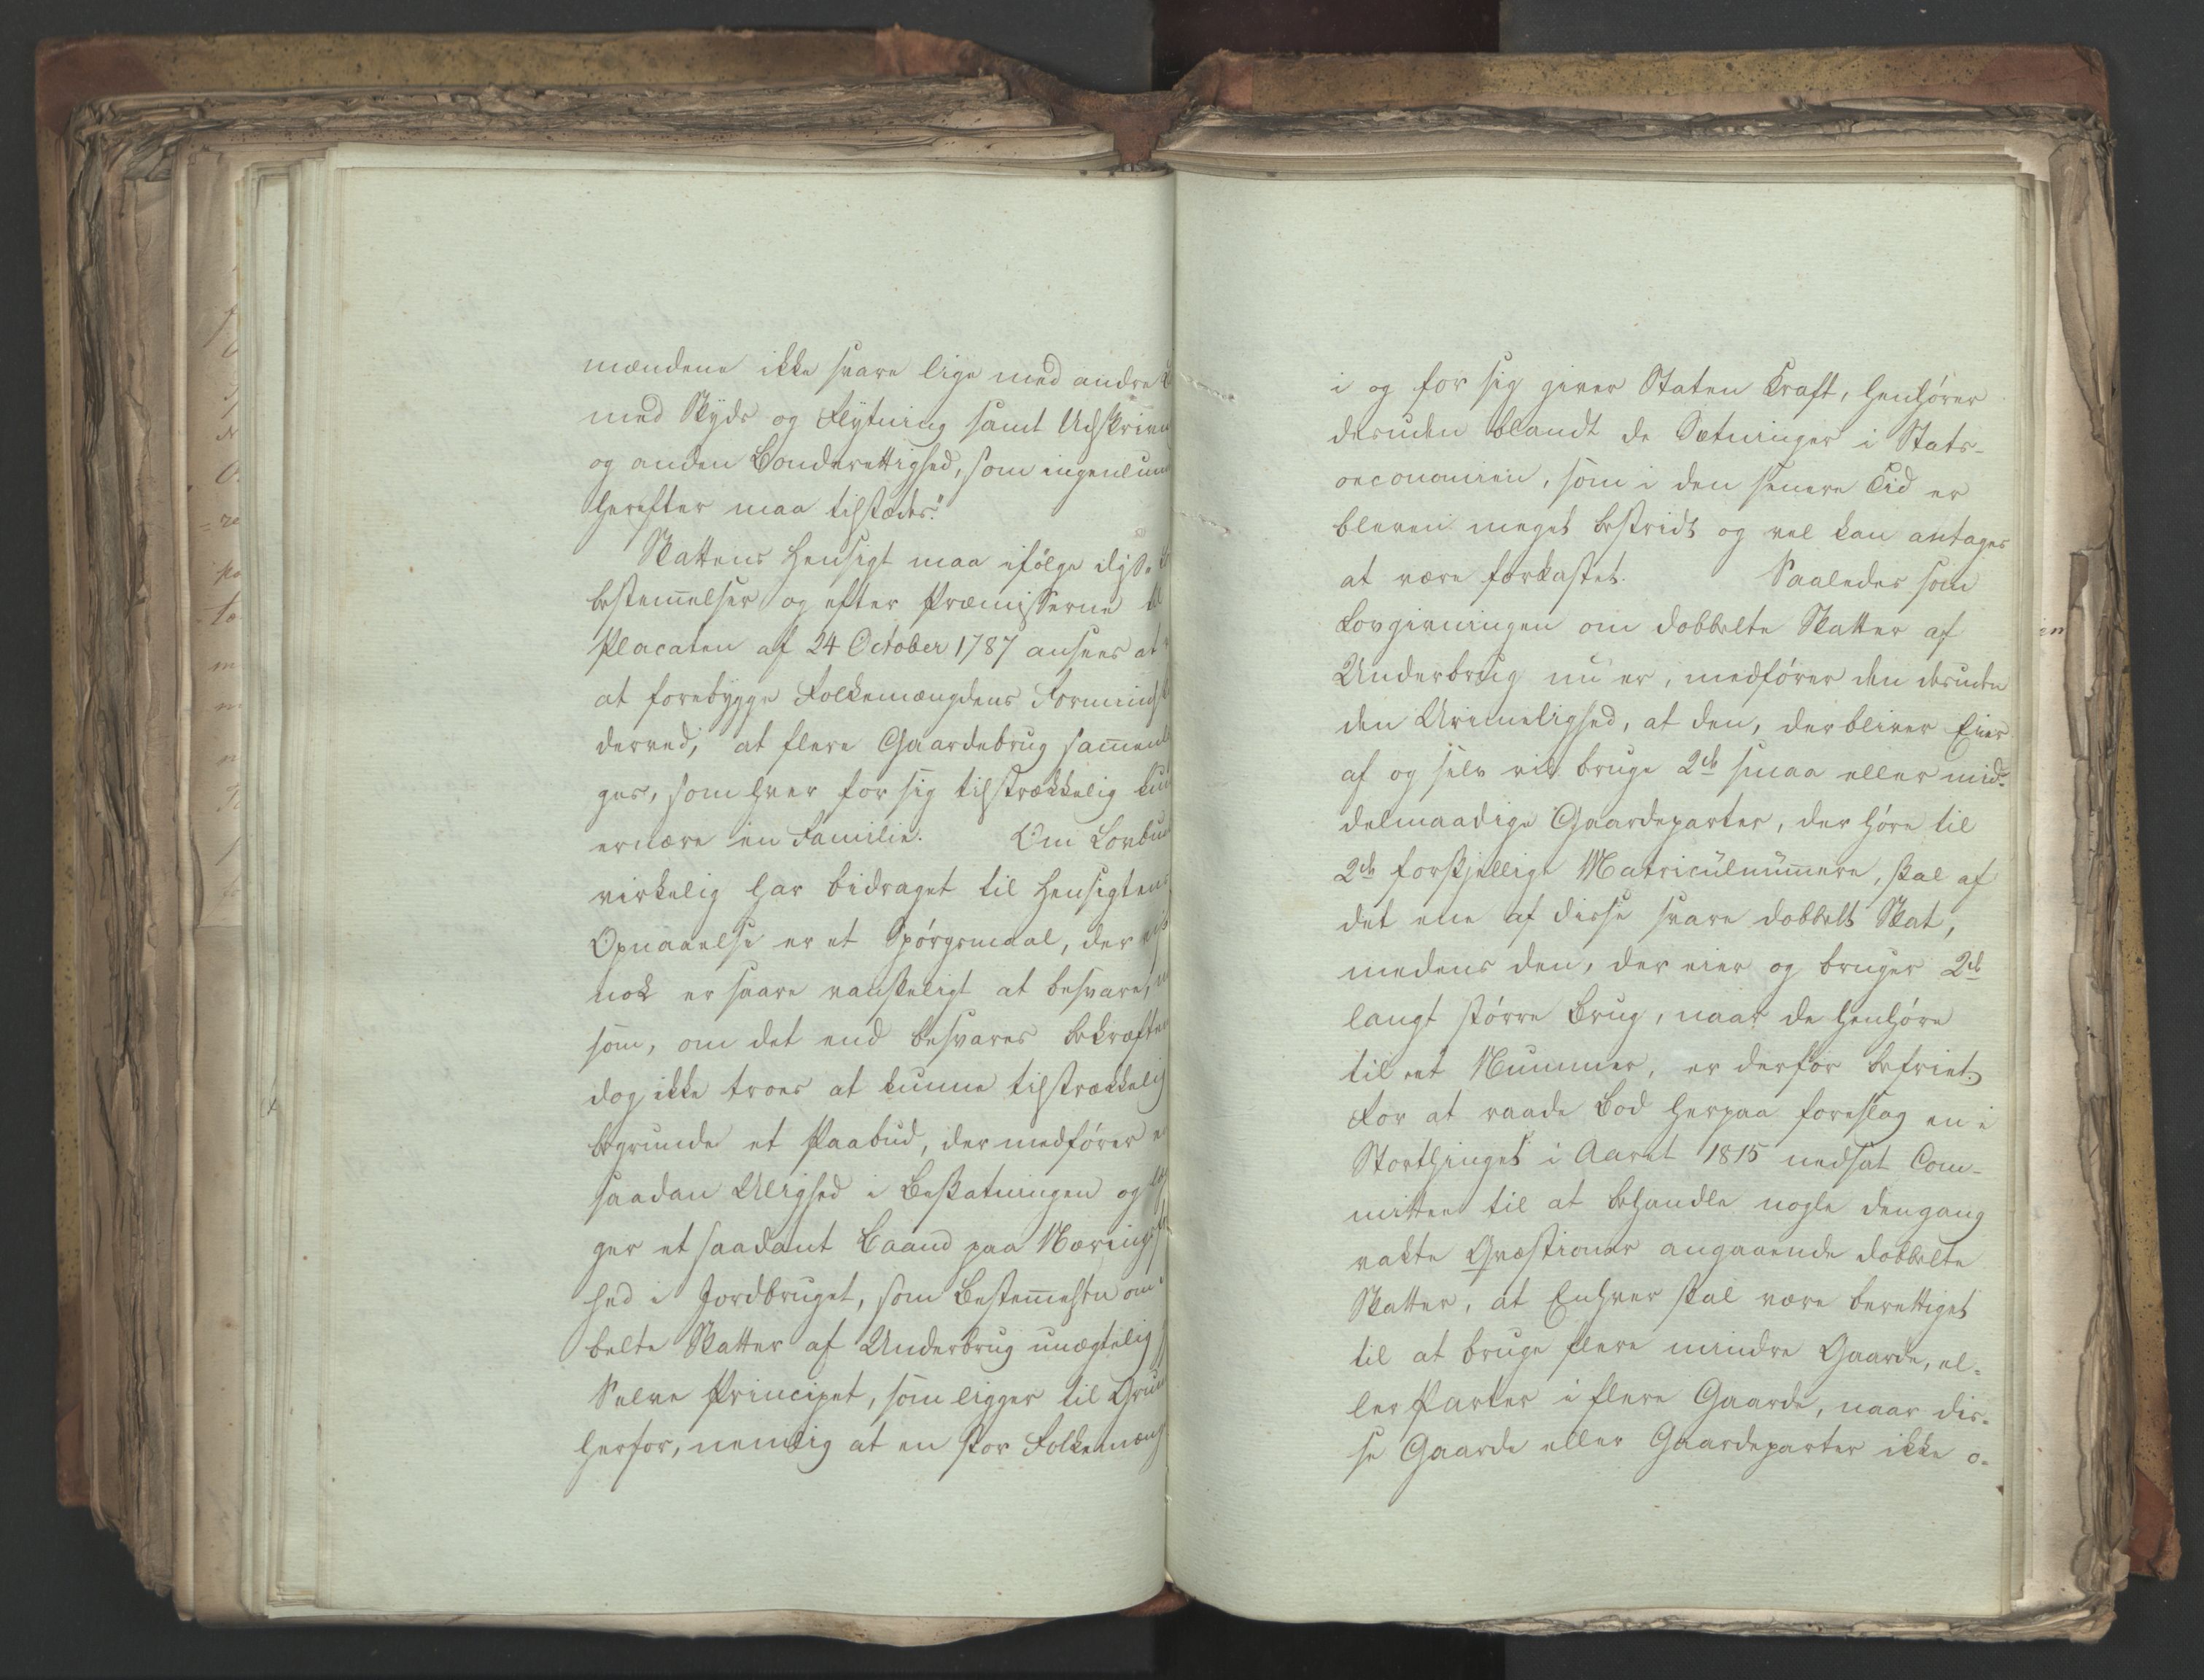 mændene ikke svare lige med andre
med Skyds og Flytning samt Udskrivn
og anden Bonderettighed, som ingenlun
herefter maa tilstædes."
Skattens Hensigt maa ifølge disse
bestem̅elser og efter Præmisserne til
Placaten af 24 October 1787 ansees at
at forebygge Folkemængdens Formindsk
derved, at flere Gaardebrug sam̅enl
ges, som hver for sig tilstrækkelig kun
ernære een Familie. Om Lovbud
virkelig har bidraget til Hensigtens
Opnaaelse er et Spørgsmaal, der vist
nok er saare vanskeligt at besvare,
som, om det end besvares bekræften
dog ikke troes at kunne tilstrækkelig
begrunde et Paabud, der medfører en
saadan Ulighed i Beskatningen og læg
ger et saadant Baand paa Næringsfri
hed i Jordbruget, som Bestem̅elsen om
belte Skatter af Underbrug unægtelig
Selve Principet, som ligger til Grund
herfor, nemlig at en stor Folkemæng
i og for sig giver Staten Kraft, henhører
desuden blandt de Sætninger i Stats-
oeconomien, som i den senere Tid er
bleven meget bestridt og vel kan antages
at være forkastet. Saaledes som
Lovgivningen om dobbelte Skatter af
Underbrug nu er, medfører den desuden
den Urimelighed, at den, der bliver Eier
af og selv vil bruge 2de smaa eller mid-
delmaadige Gaardeparter, der høre til
2de forskjellige Matriculnum̅ere, skal af
det ene af disse svare dobbelt Skat,
medens den, der eier og bruger 2de
langt større Brug, naar de henhøre
til eet Nummer, er derfor befriet.
For at raade Bod herpaa foreslog en i
Storthinget i Aaret 1815 nedsat Com-
mittee til at behandle nogle dengang
vakte Qvæstioner angaaende dobbelte
Skatter, at Enhver skal være berettiget
til at bruge flere mindre Gaarde, el-
ler Parter i flere Gaarde, naar dis-
se Gaarde eller Gaardeparter ikke o-